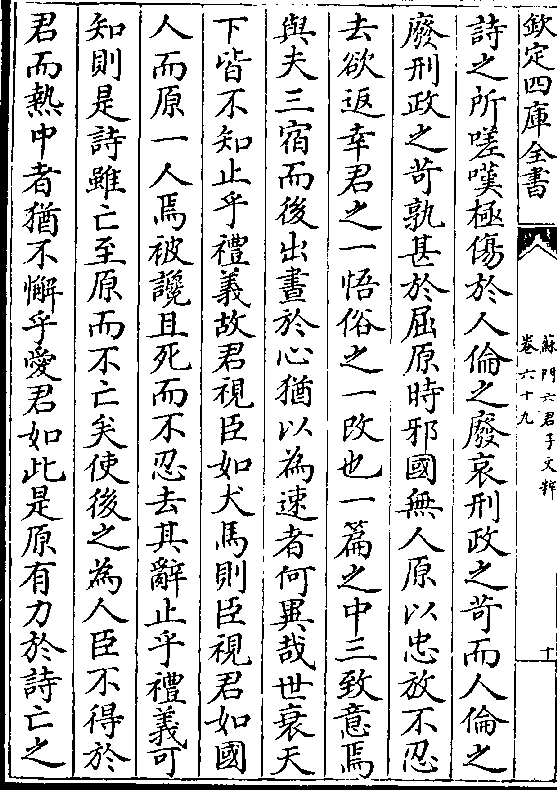 欽定四庫全書
蘇門六君子文粹
卷六十九
十
詩之所嗟嘆極傷於人倫之廢哀刑政之苛而人倫之
廢刑政之苛孰甚於屈原時邪國無人原以忠放不忍
去欲返幸君之一悟俗之一改也一篇之中三致意焉
與夫三宿而後出晝於心猶以為速者何異哉世衰天
下皆不知止乎禮義故君視臣如犬馬則臣視君如國
人而原一人焉被讒且死而不忍去其辭止乎禮義可
知則是詩雖亡至原而不亡矣使後之為人臣不得於
君而熱中者猶不懈乎愛君如此是原有力於詩亡之